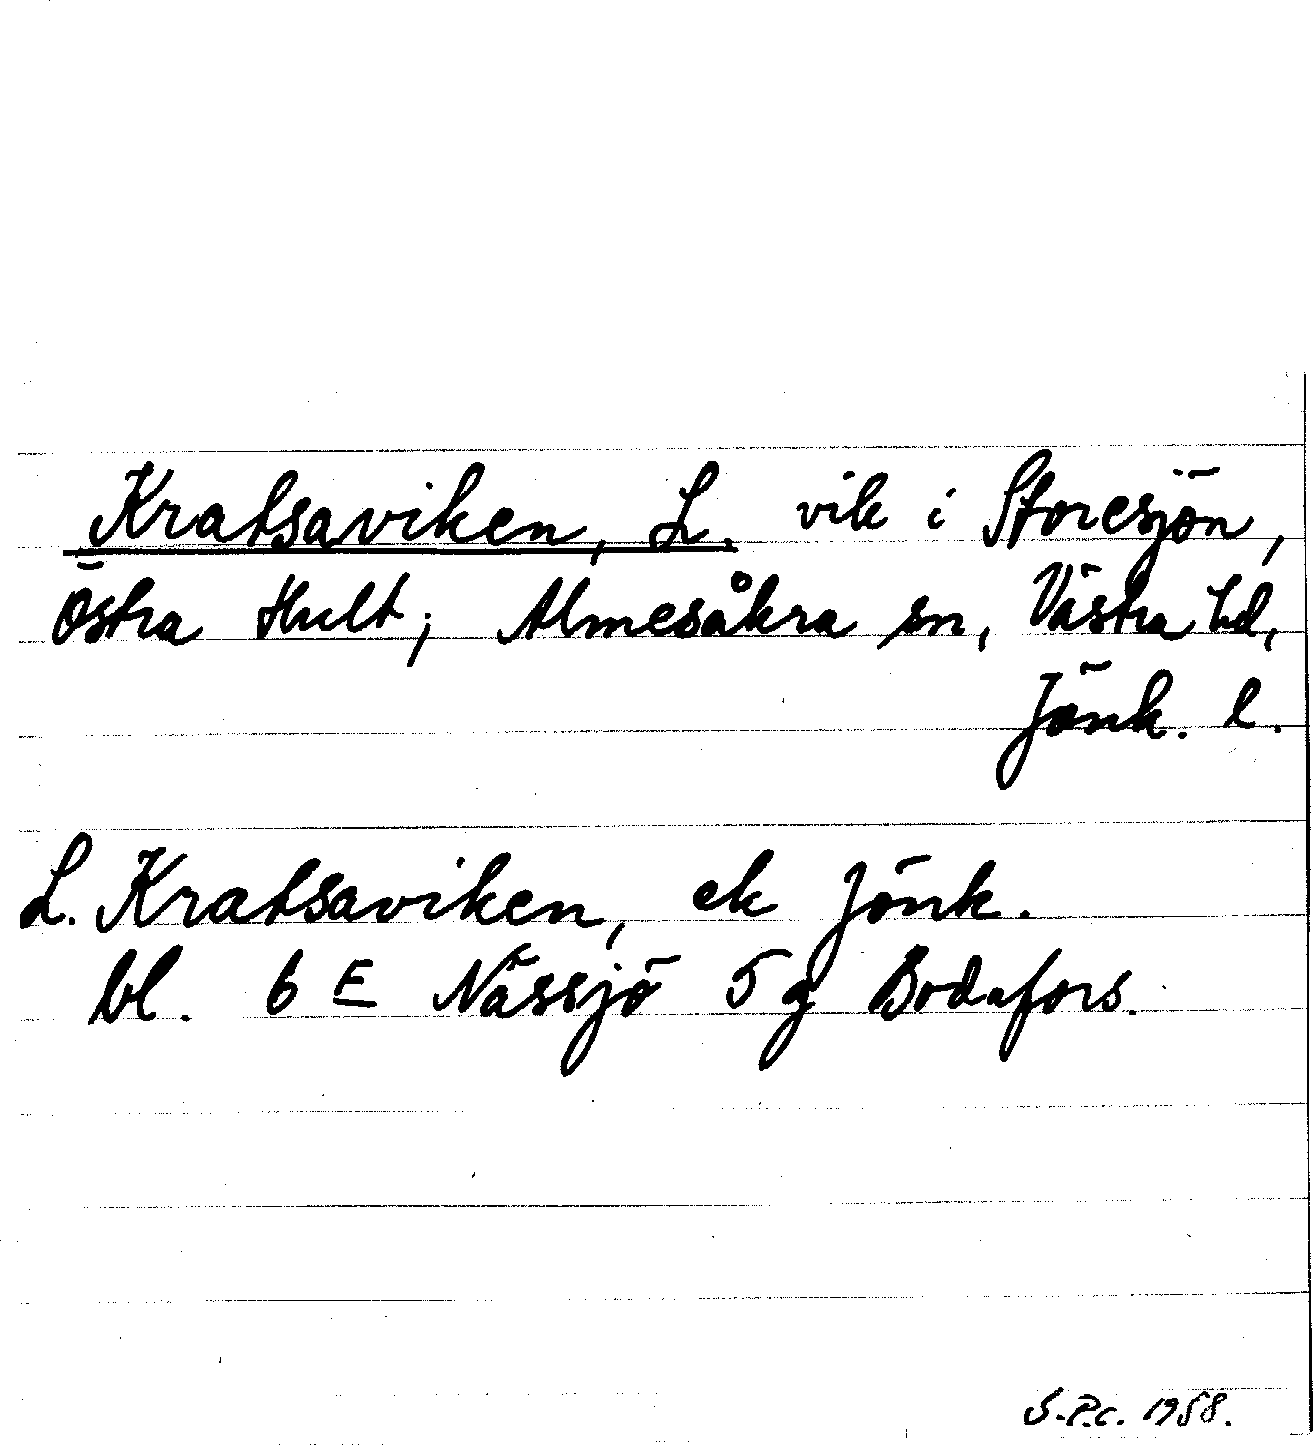 Kratsaviken, L. vik i Storesjön,
Östra Hult; Almesåkra sn, Västra hd,
Jönk. l.
L. Kratsaviken, ek Jönk.
bl. 6 E Nässjö 5 g Bodafors.
S.P.C. 1958.